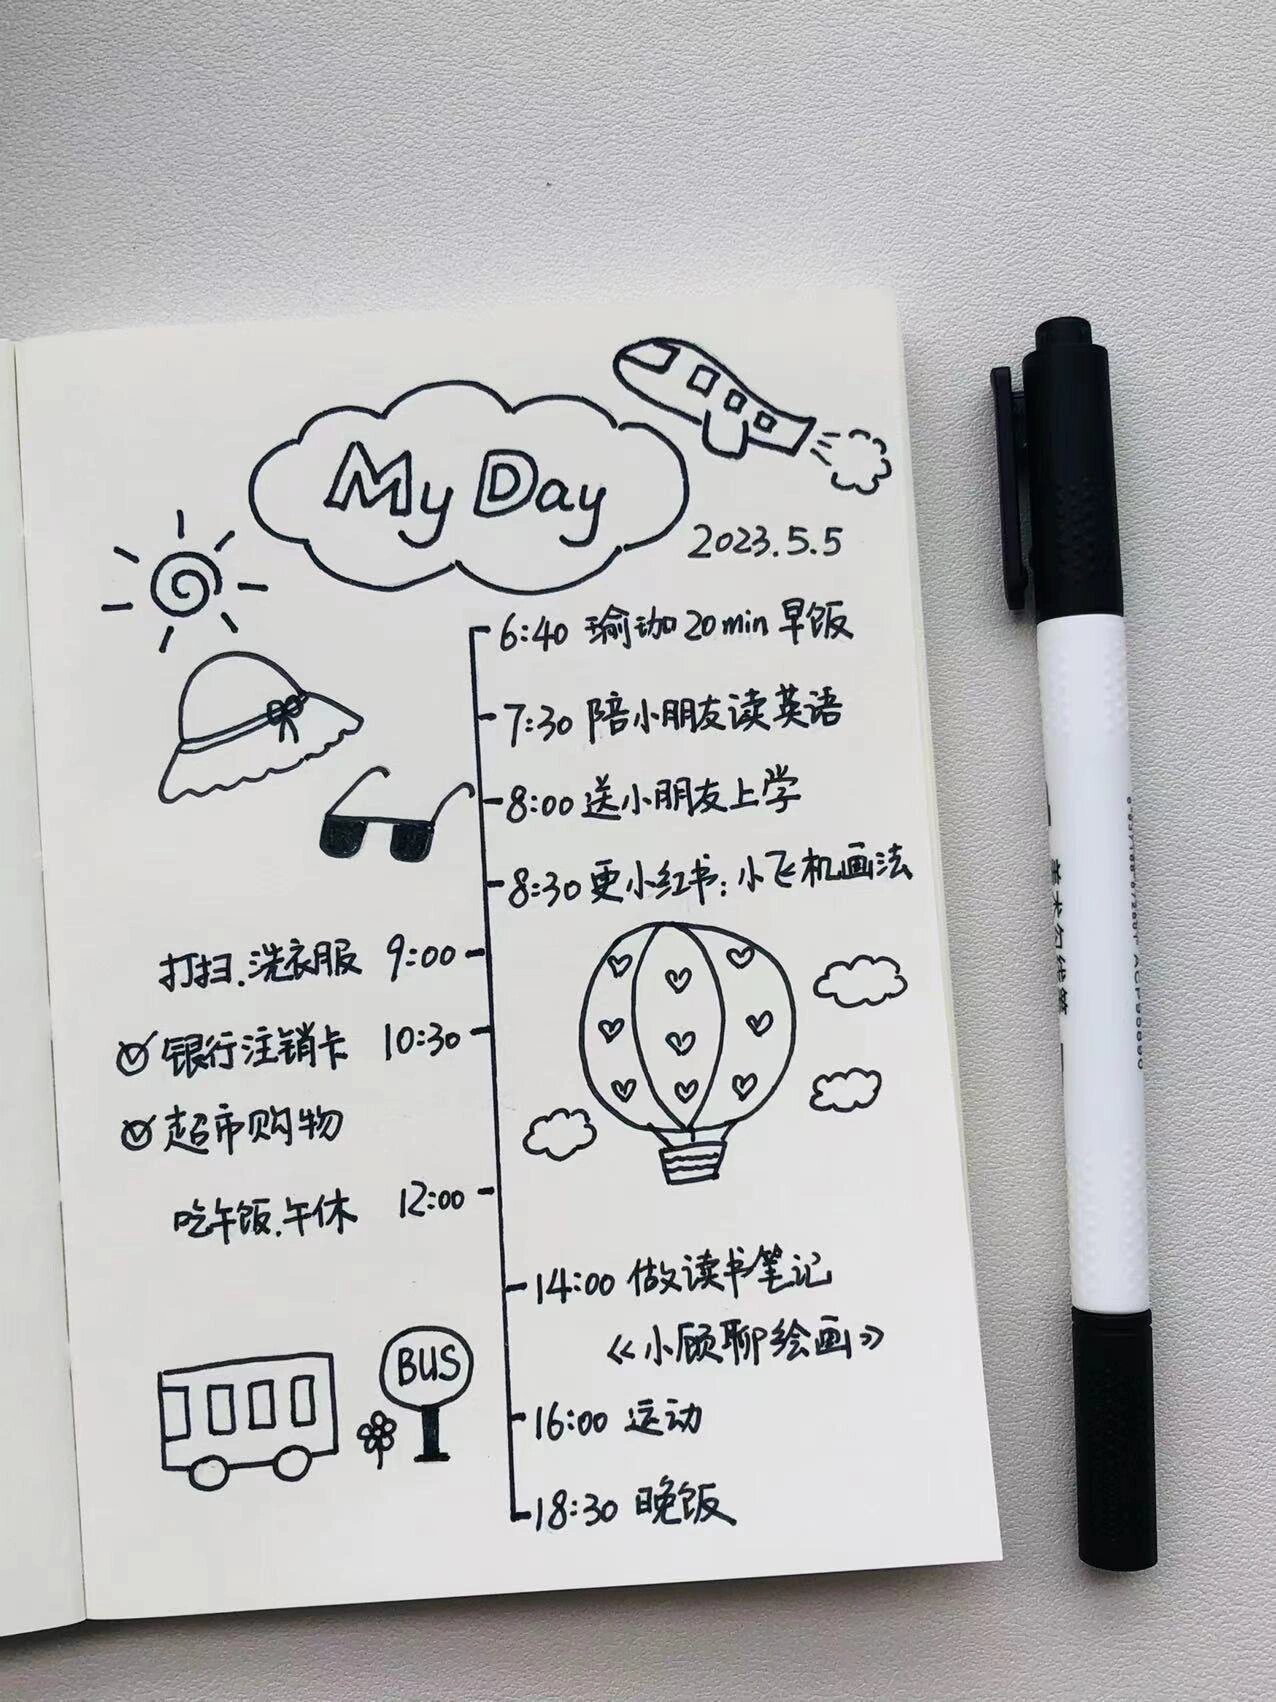 My Day
2023.5.5
6:40 瑜珈20min 早饭
7:30 陪小朋友读英语
8:00 送小朋友上学
8:30 更小红书:小飞机画法
打扫.洗衣服 9:00
银行注销卡 10:30
超市购物
吃午饭.午休 12:00
14:00 做读书笔记
《小顾聊绘画》
16:00 运动
18:30 晚饭
BUS
美术勾线笔